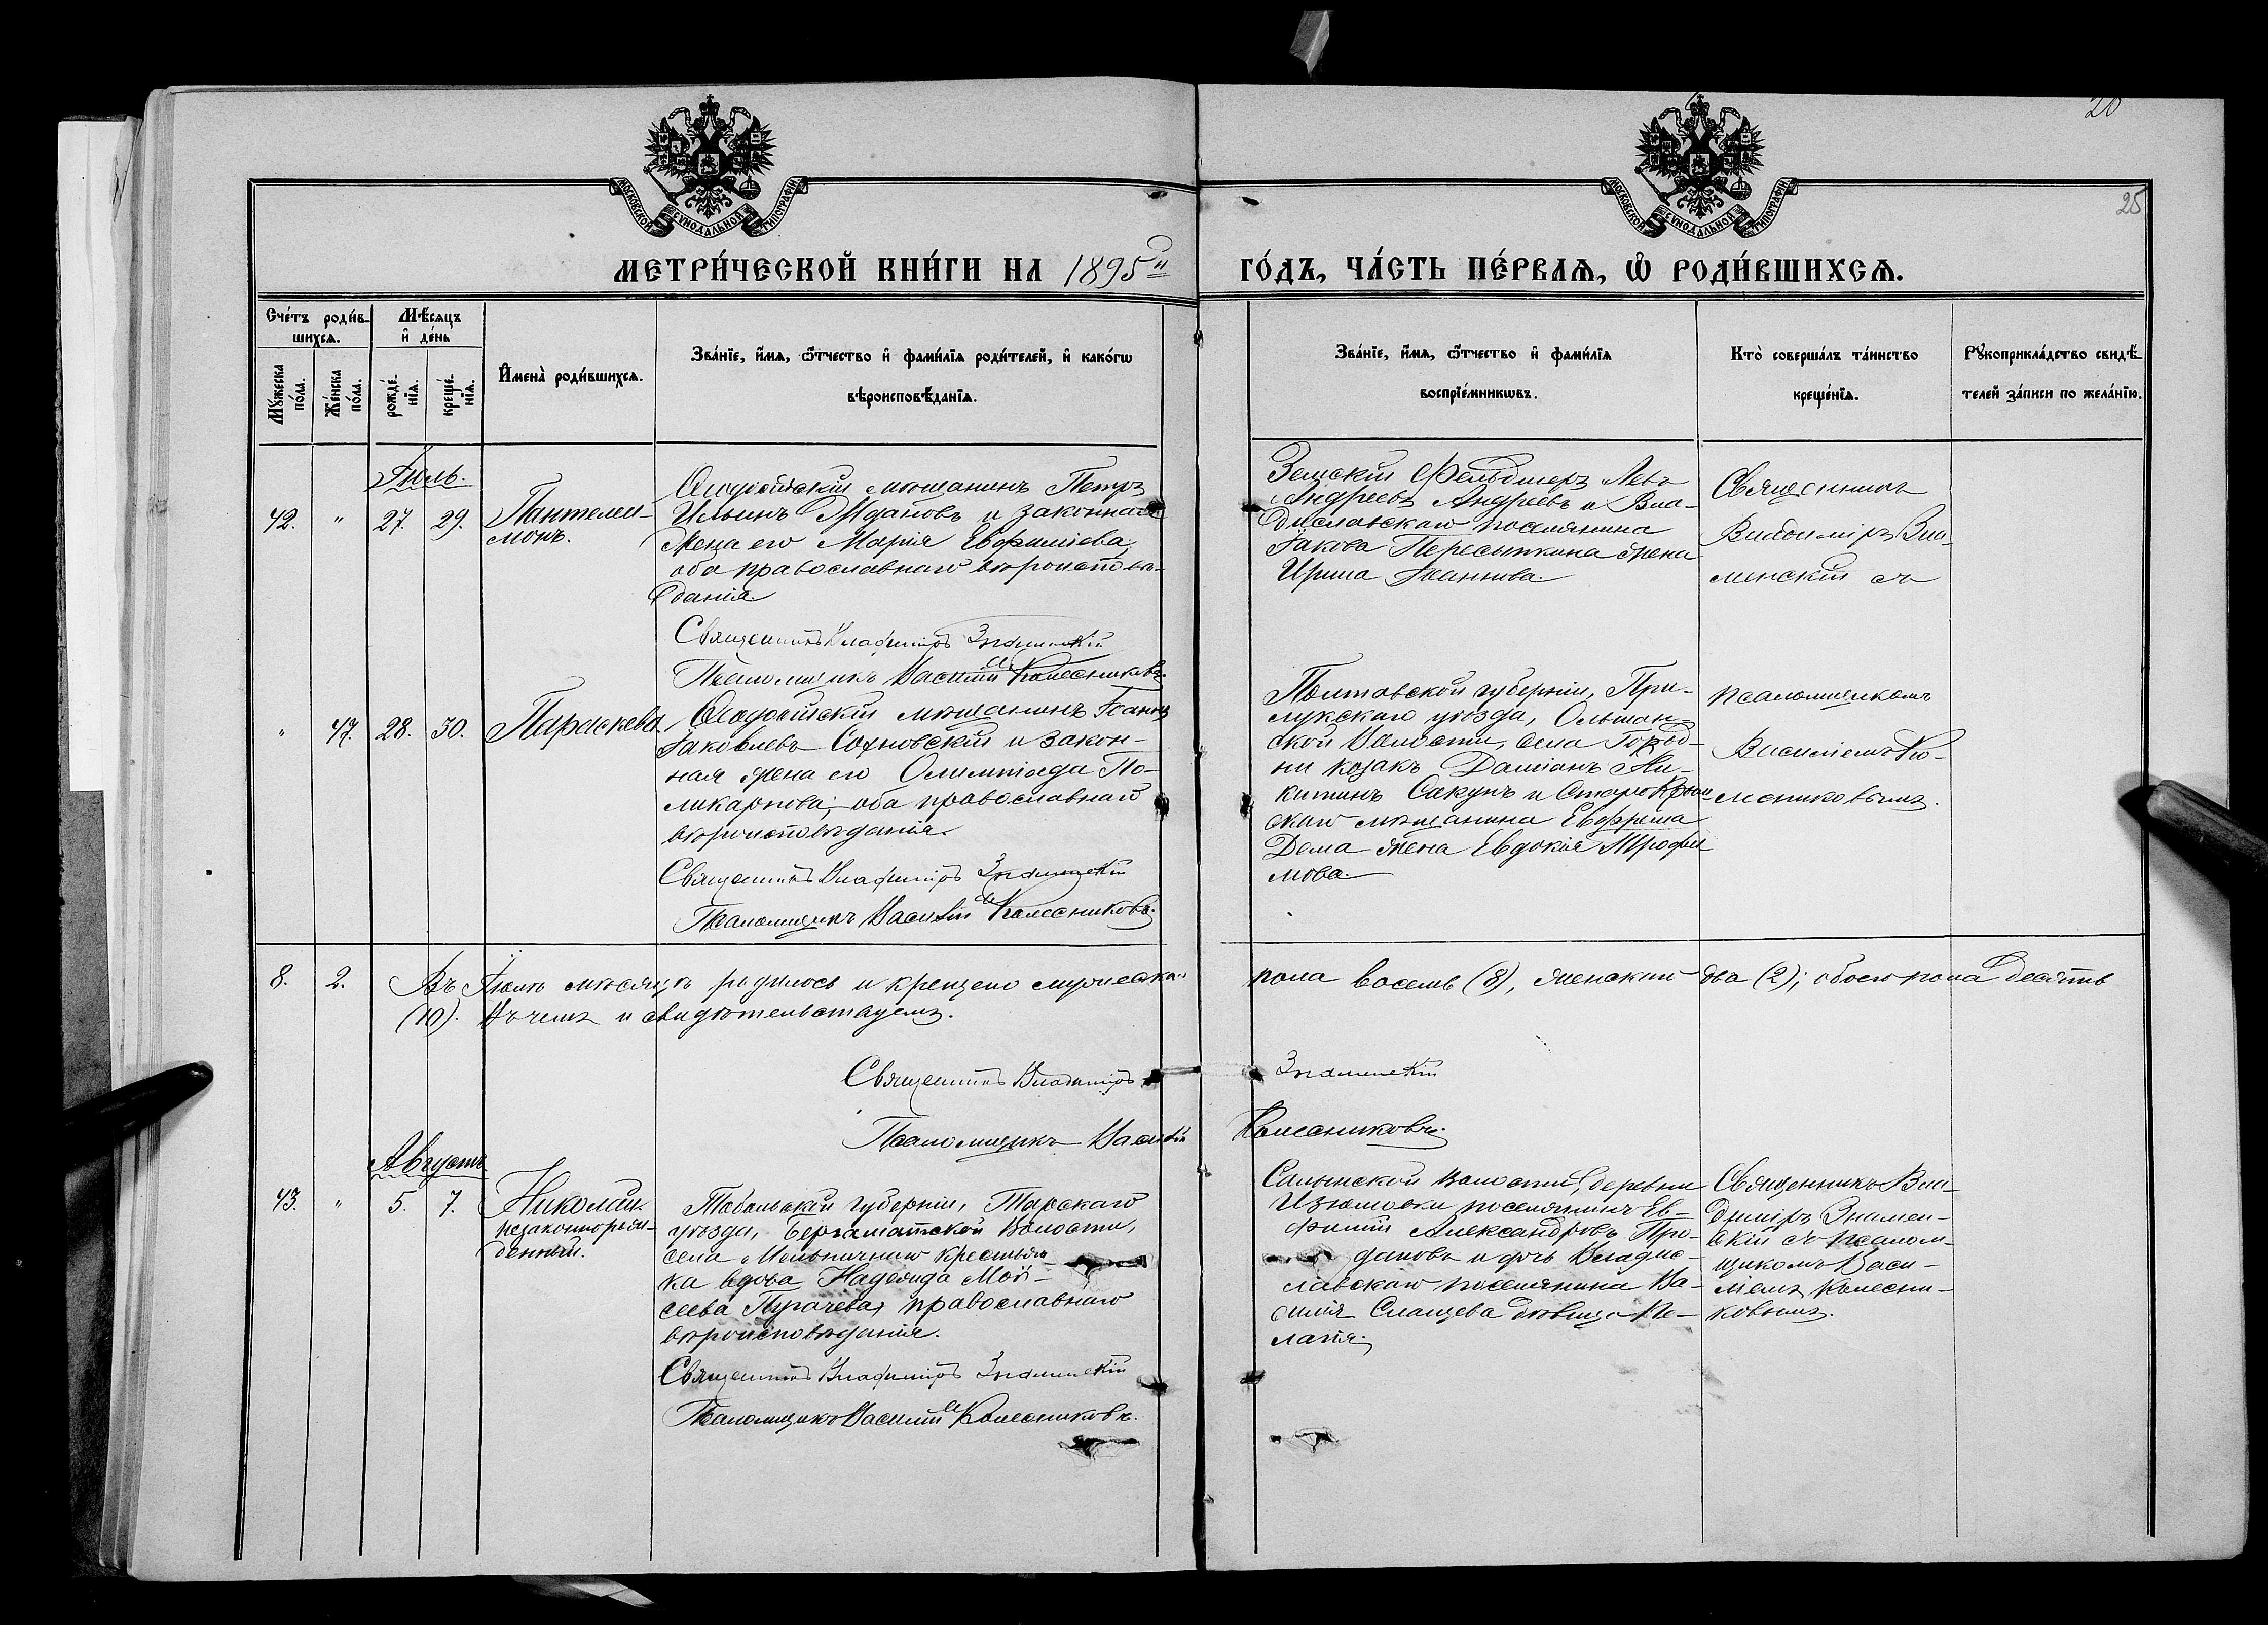 20
25
МОСКОВСКОЙ СѴНОДАЛЬНОЙ ТИПОГРАФІИ
МОСКОВСКОЙ СѴНОДАЛЬНОЙ ТИПОГРАФІИ
МЕТРИ́ЧЕСКОЙ КНИ́ГИ НА 1895й ГО́ДЪ, ЧА́СТЬ ПЕ́РВАЯ, Ѡ҆ РОДИ́ВШИХСЯ.
Сче́тъ роди́в-
шихся.
Мѣ́сяцъ
и҆ де́нь
Мꙋ́жеска по́ла.
Же́нска по́ла.
рожде́-
нїя.
креще́-
нїя.
И҆мена̀ роди́вшихся.
Зва́нїе, и҆́мя, ѻ҆́тчество и҆ фами́лїя роди́телей, и҆ како́гѡ
вѣроисповѣ́данїя.
Зва́нїе, и҆́мя, ѻ҆́тчество и҆ фами́лїя
воспрїе́мникѡвъ.
Кто̀ соверша́лъ та́инство
креще́нїя.
Рꙋкоприкла́дство свидѣ́-
телей за́писи по жела́нїю.
Іюль.
42. " 27. 29.
Пантелеи-
монъ.
Ѳеодосійскій мѣщанинъ Петръ
Ильинъ и законная
жена его Марія Евфиміева,
оба православнаго вѣроисповѣ-
данія.
Священникъ Владиміръ Знаменскій
Псаломщикъ Василій Колесниковъ.
Земскій Фельдшеръ Левъ
Андреевъ Андреевъ и Вла-
диславскаго поселянина
Іакова Пересыпкина жена
Ирина Іоаннова.
Священникъ
Владиміръ Зна-
менскій съ
" 47. 28. 30.
Параскева
Ѳеодосійскій мѣщанинъ Іоаннъ
Іаковлевъ Сохновскій и закон-
ная жена его Олимпіада По-
ликарпова; оба православнаго
вѣроисповѣданія.
Священникъ Владиміръ Знаменскій
Псаломщикъ Василій Колесниковъ.
Полтавской губерніи, При-
лукскаго уѣзда, Ольшан-
ской Волости, села Город-
ни козакъ Даміанъ Ни-
китинъ Сакунъ и Старокрым-
скаго мѣщанина Евфрема
Дема жена Евдокія Трофи-
мова.
псаломщикомъ
Василіемъ Ко-
лесниковымъ.
8. 2. Въ Іюлѣ мѣсяцѣ родилось и крещено мужеска пола восемь (8), женскаго два (2); обоего пола десять
(10). Въ чемъ и свидѣтельствуемъ.
Священникъ Владиміръ Знаменскій
Псаломщикъ Василій Колесниковъ.
Августъ
43. " 5. 7.
Николай
незаконнорож-
денный.
Тобольской губерніи, Тарскаго
уѣзда, Бергаматской Волости,
села Мельничнаго крестьян-
ка вдова Надежда Мои-
сеева Пугачева, православнаго
вѣроисповѣданія.
Священникъ Владиміръ Знаменскій
Псаломщикъ Василій Колесниковъ.
Салынской волости, деревни
Изюмовки поселянинъ Ев-
фимій Александровъ Про-
дановъ и дочь Владис-
лавскаго поселянина Ва-
силія Слащева дѣвица Пе-
лагія.
Священникъ Вла-
диміръ Знамен-
скій съ псалом-
щикомъ Васи-
ліемъ Колесни-
ковымъ.